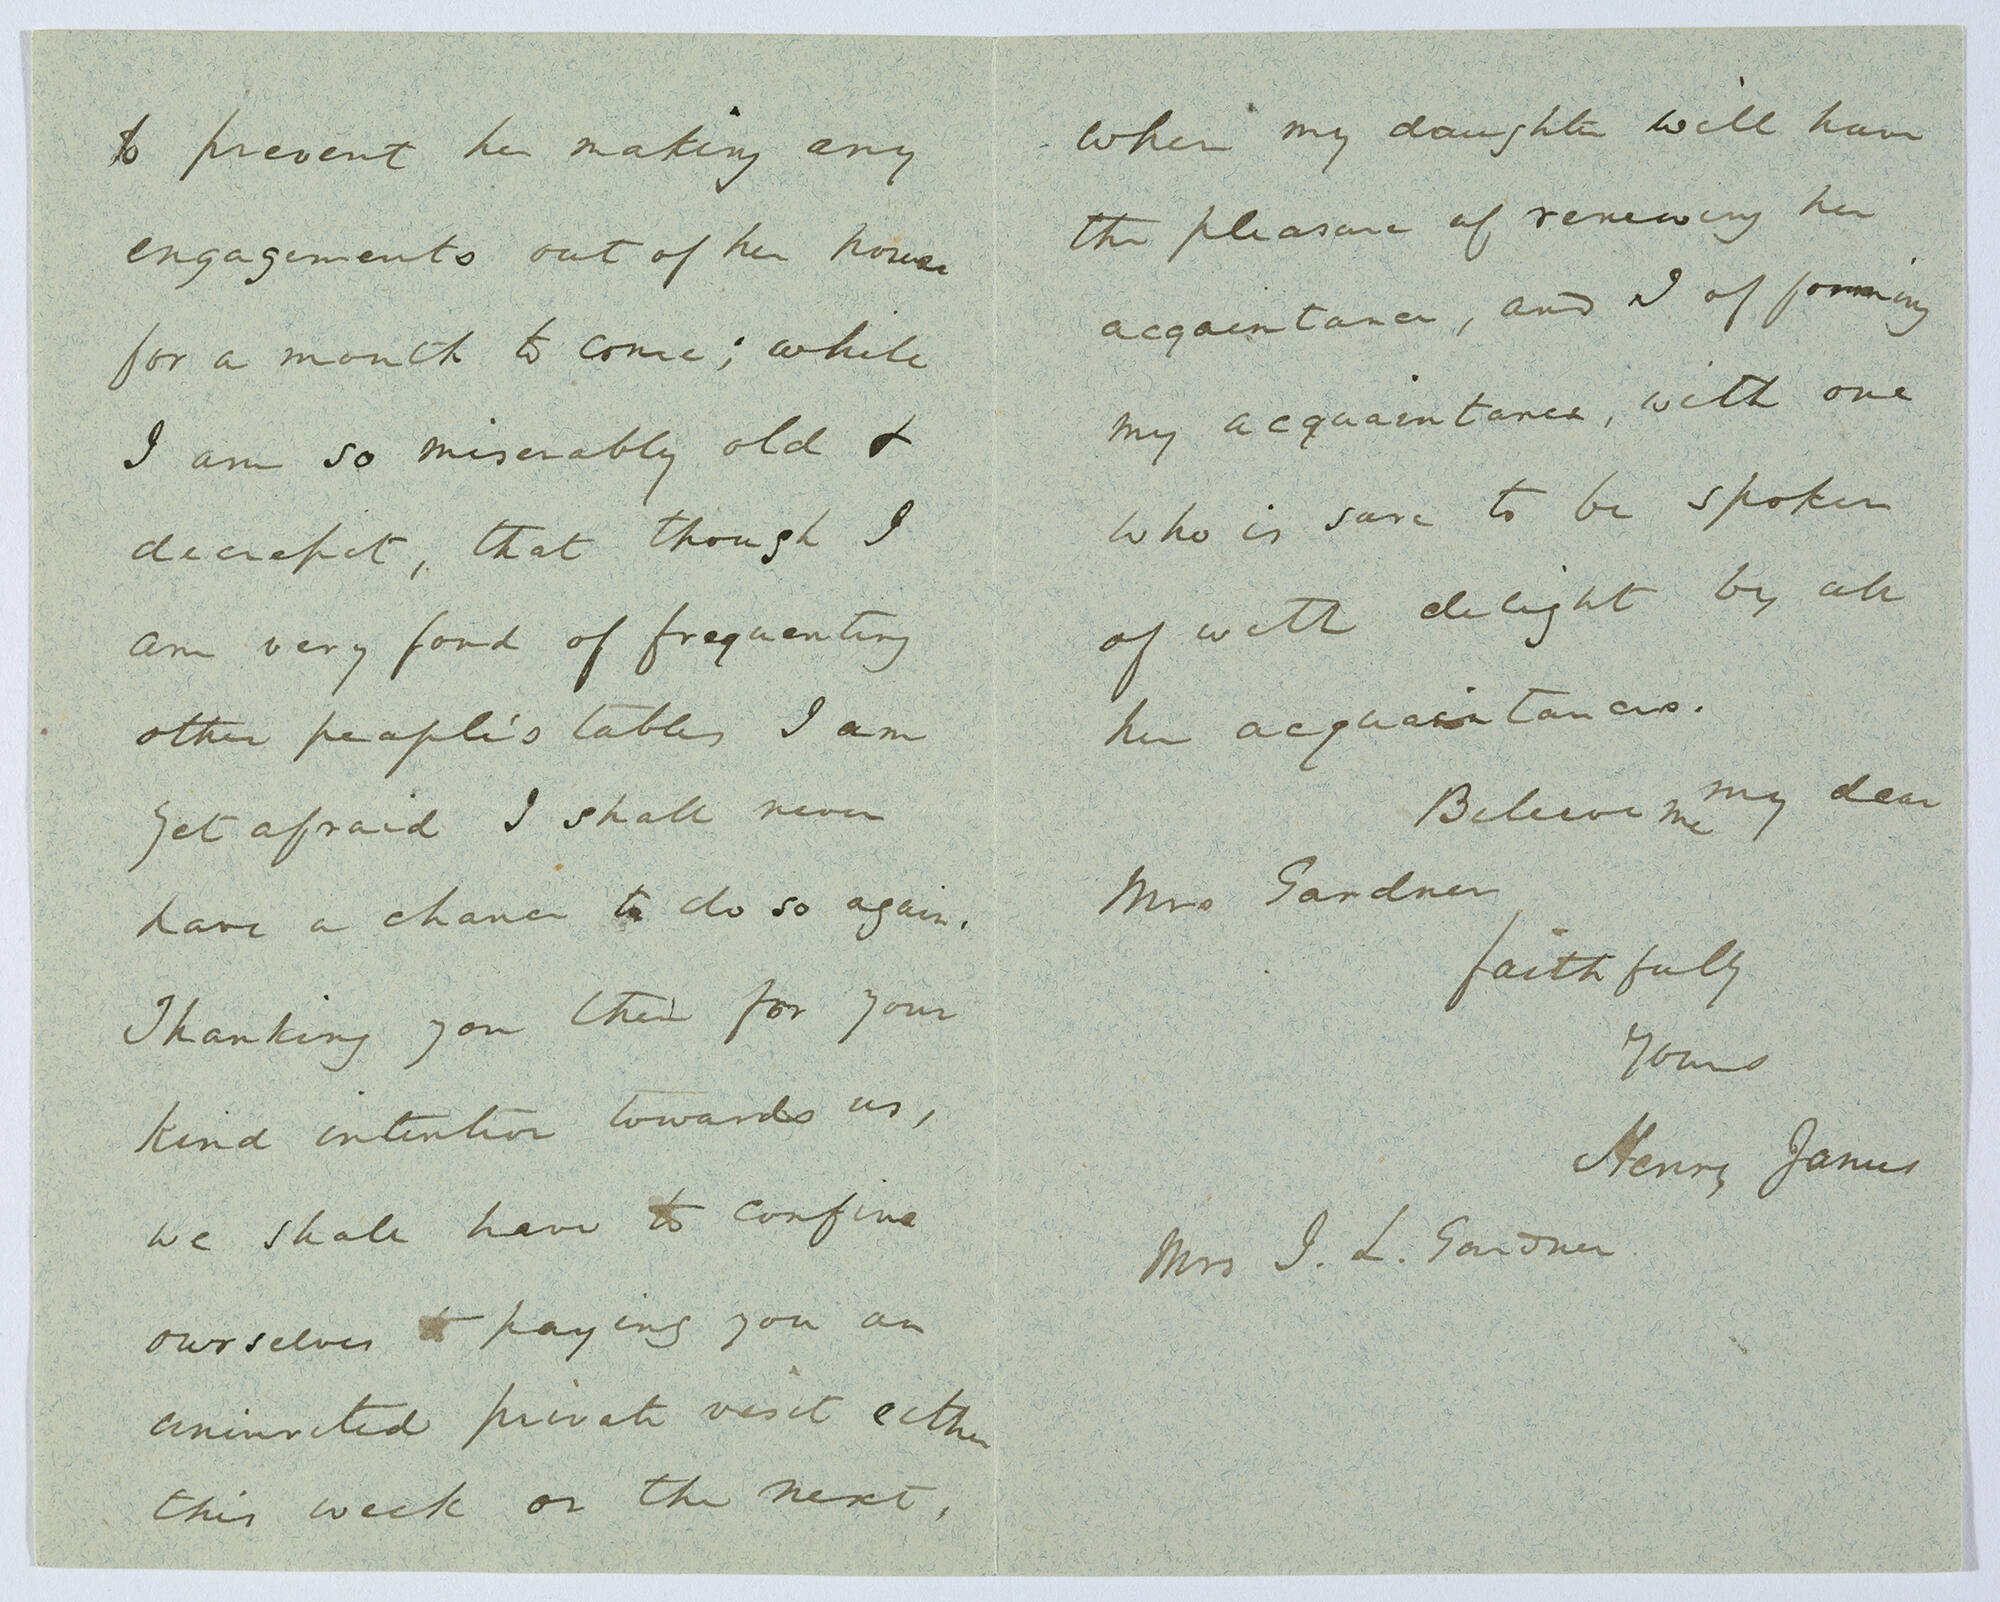 to prevent her making any
engagements out of her house
for a month to come; while
I am so miserably old &
decrepit, that though I
am very fond of frequenting
other people's tables I am
yet afraid I shall never
have a chance to do so again.
Thanking you then for your
kind intention towards us,
we shall have to confine
ourselves to paying you an
uninvited private visit either
this week or the next,
when my daughter will have
the pleasure of renewing her
acquaintance, and I of forming
my acquaintance, with one
who is sure to be spoken
of with delight by all
her acquaintances.
Believe me my dear
Mrs Gardner
faithfully
Yours
Henry James
Mrs I. L. Gardner